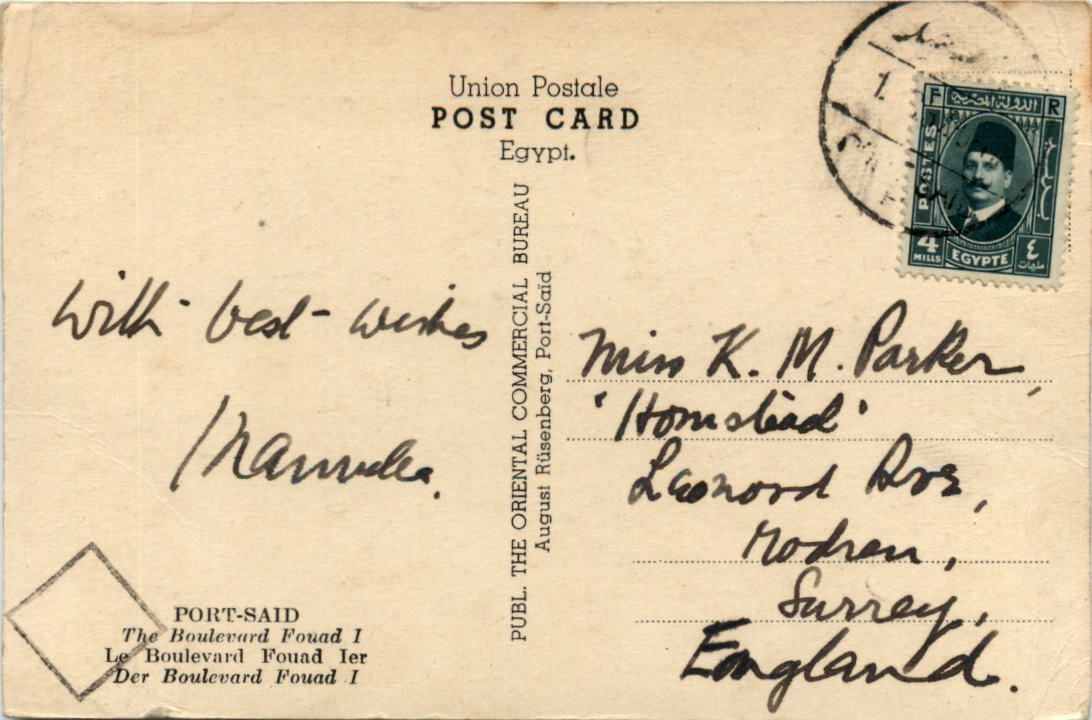 Union Postale
POST CARD
Egypt.
الدولة المصرية
F R
POSTES
4
MILLS
EGYPTE
٤
مليمات
1.
PUBL. THE ORIENTAL COMMERCIAL BUREAU
August Rüsenberg, Port-Saïd
With best wishes
Miss K. M. Parker,
'Homstead'
Leonord Ave,
Surrey,
England.
PORT-SAID
The Boulevard Fouad I
Le Boulevard Fouad Ier
Der Boulevard Fouad I